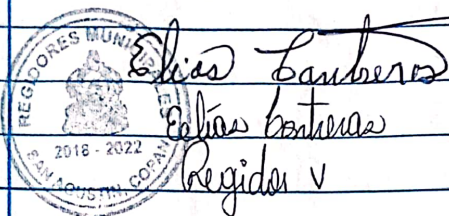 REGIDORES MUNICIPALES
2018 - 2022
SAN AGUSTIN, COPAN
Elias Contreras
Eelías Contreras
Regidor V